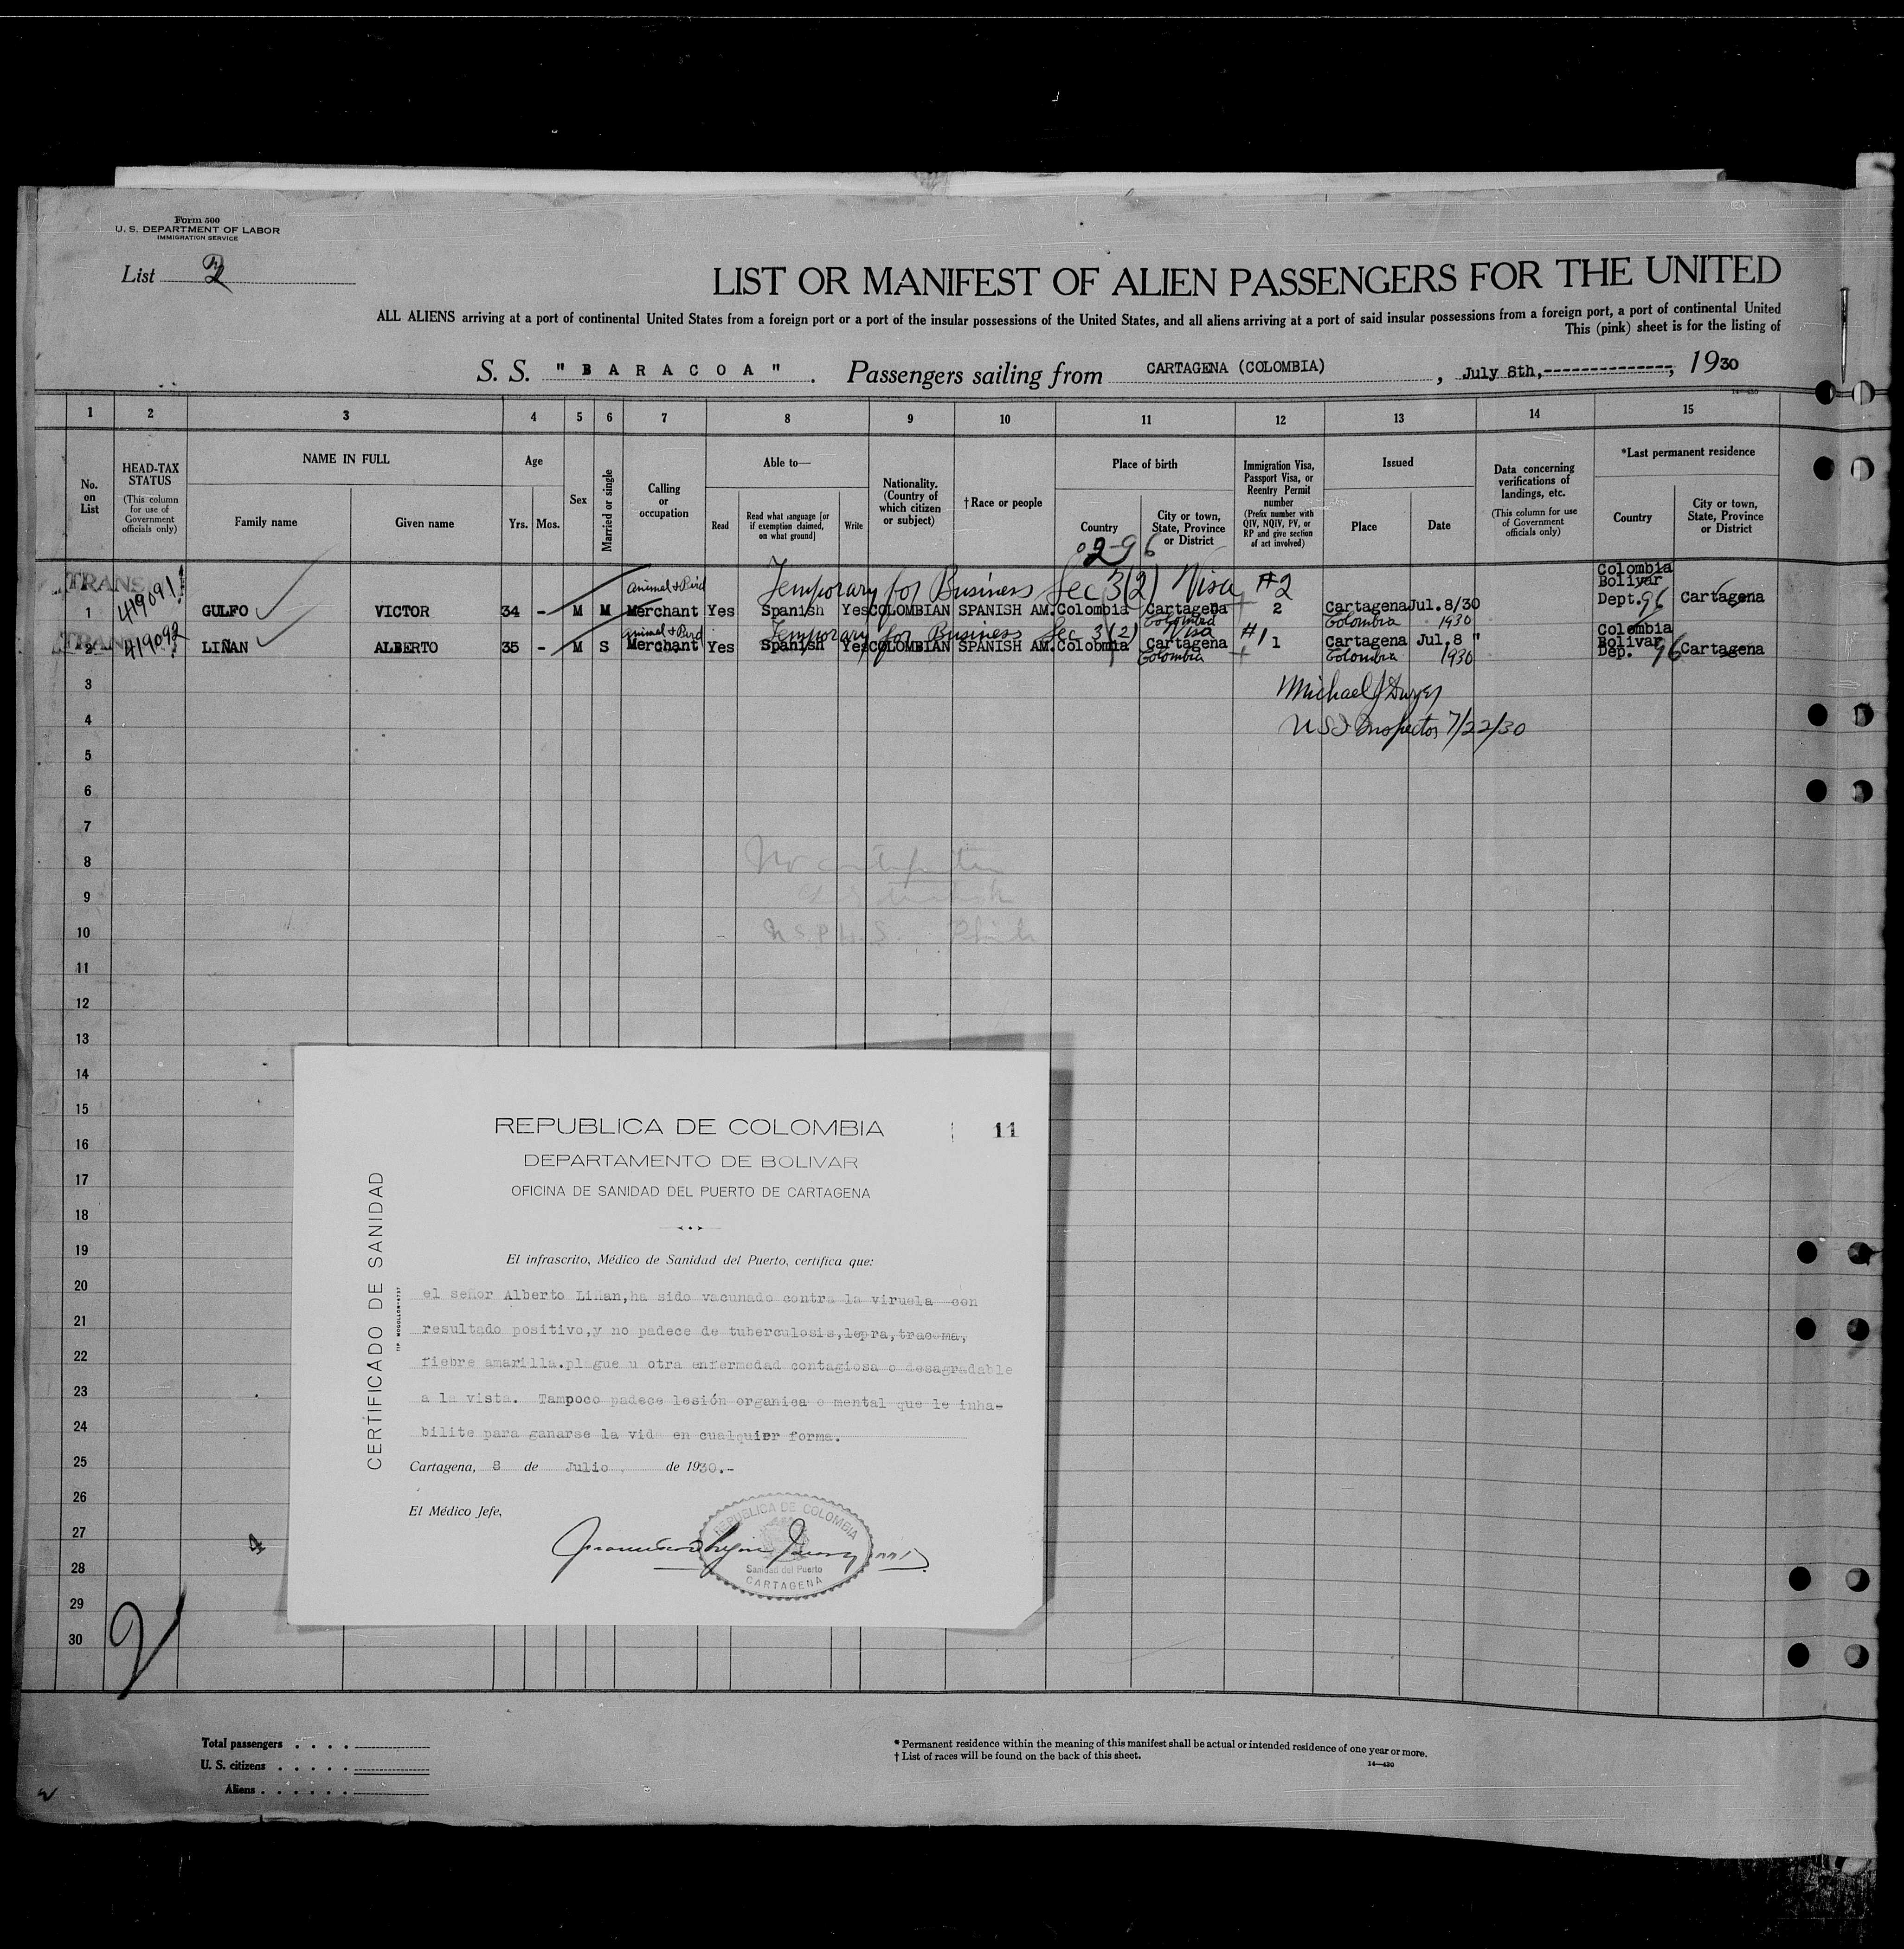 Form 500
U. S. DEPARTMENT OF LABOR
IMMIGRATION SERVICE
List 2
LIST OR MANIFEST OF ALIEN PASSENGERS FOR THE UNITED
ALL ALIENS arriving at a port of continental United States from a foreign port or a port of the insular possessions of the United States, and all aliens arriving at a port of said insular possessions from a foreign port, a port of continental United
This (pink) sheet is for the listing of
S. S. "BARACOA". Passengers sailing from CARTAGENA (COLOMBIA), July 8th,---------------, 1930
14—430
1 2 3 4 5 6 7 8 9 10 11 12 13 14 15
No. on List
HEAD-TAX STATUS (This column for use of Government officials only)
NAME IN FULL
Family name
Given name
Age
Yrs. Mos.
Sex
Married or single
Calling or occupation
Able to—
Read
Read what language [or if exemption claimed, on what ground]
Write
Nationality. (Country of which citizen or subject)
†Race or people
Place of birth
Country
City or town, State, Province or District
02-96
Immigration Visa, Passport Visa, or Reentry Permit number (Prefix number with QIV, NQIV, PV, or RP and give section of act involved)
Issued
Place
Date
Data concerning verifications of landings, etc. (This column for use of Government officials only)
*Last permanent residence
Country
City or town, State, Province or District
TRANS 419091 animal & Bird Temporary for Business Sec 3(2) Visa #2 Colombia Bolivar
1 GULFO VICTOR 34 - M M Merchant Yes Spanish Yes COLOMBIAN SPANISH AM. Colombia Cartagena 2 Cartagena Jul.8/30 Dept. 96 Cartagena
Colombia Colombia 1930
TRANS 419092 animal & Bird Temporary for Business Sec 3(2) Visa #1 Colombia
2 LIÑAN ALBERTO 35 - M S Merchant Yes Spanish Yes COLOMBIAN SPANISH AM. Colobmia Cartagena 1 Cartagena Jul.8 " Bolivar Dep. 96 Cartagena
Colombia Colombia 1930
3
Michael J Dwyer
4
U S I Inspector 7/22/30
5
6
7
8
9
10
U.S.P.H.S.
11
12
13
14
15
16
17
18
19
20
21
22
23
24
25
26
27
28
29
30
REPUBLICA DE COLOMBIA
11
DEPARTAMENTO DE BOLIVAR
OFICINA DE SANIDAD DEL PUERTO DE CARTAGENA
CERTIFICADO DE SANIDAD
TIP MOGOLLON—4737
El infrascrito, Médico de Sanidad del Puerto, certifica que:
el señor Alberto Liñan,ha sido vacunado contra la viruela con
resultado positivo,y no padece de tuberculosis,lepra,tracoma,
fiebre amarilla.plague u otra enfermedad contagiosa o desagradable
a la vista. Tampoco padece lesión organica o mental que le inha-
bilite para ganarse la vida en cualquier forma.
Cartagena, 8 de Julio de 1930.-
El Médico Jefe,
REPUBLICA DE COLOMBIA
Sanidad del Puerto
CARTAGENA
4
2
Total passengers
U. S. citizens
Aliens
* Permanent residence within the meaning of this manifest shall be actual or intended residence of one year or more.
† List of races will be found on the back of this sheet.
14—430